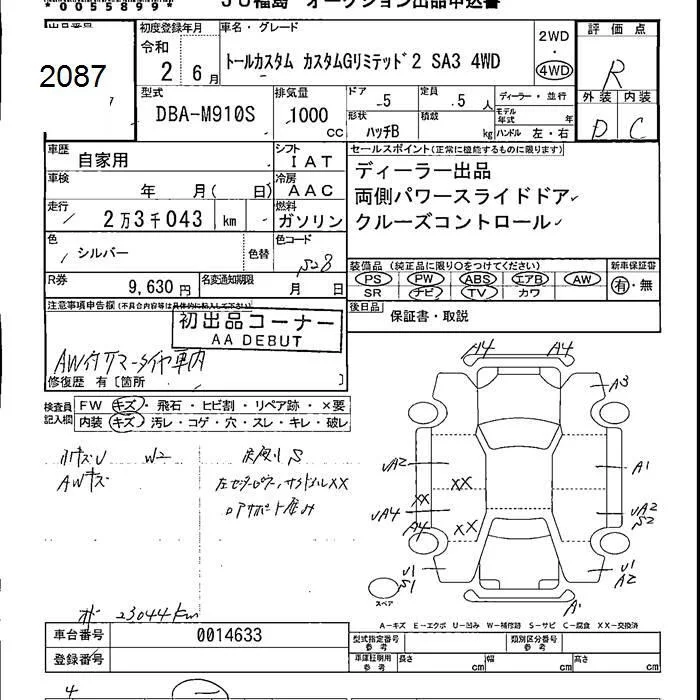 *0055899*
JU福島 オークション出品申込書
出品番号
2087
初度登録年月
令和
2 6月
車名・グレード
トールカスタム カスタムGリミテッド2 SA3 4WD
2WD
・
4WD
評価点
R
外装 内装
D C
型式
DBA-M910S
排気量
1000
cc
ドア
5
定員
5 人
形状
ハッチB
積載
kg
ディーラー・並行
モデル年式 年
ハンドル 左・右
車歴
自家用
シフト
IAT
車検
年 月( 日)
冷房
AAC
走行
2万3千043 km
燃料
ガソリン
色
シルバー
色替
色コード
S28
R券
9,630円
名変通知期限
月 日
セールスポイント(正常に機能するものに限ります)
ディーラー出品
両側パワースライドドア
クルーズコントロール
装備品(純正品に限り○をつけてください)
PS PW ABS エアB AW
SR ナビ TV カワ
新車保証書
有・無
後日品
保証書・取説
注意事項申告欄(不具合内容等は具体的に記入して下さい)
初出品コーナー
AA DEBUT
AW付サマータイヤ車内
修復歴 有〔箇所 〕
検査員記入欄
FW キズ・飛石・ヒビ割・リペア跡・×要
内装 キズ・汚レ・コゲ・穴・スレ・キレ・破レ
W2
AWキズ
S
XX
A4 A4
A3
UA2
A1
XX XX
UA4
A4 XX
UA2
S2
U1
S1
U1
A2
A1
スペア
A-キズ E-エクボ U-凹み W-補修跡 S-サビ C-腐食 XX-交換済
23044km
車台番号
0014633
登録番号
型式指定番号
参考
類別区分番号
参考
車庫証明用
参考
長さ cm
幅 cm
高さ cm
4